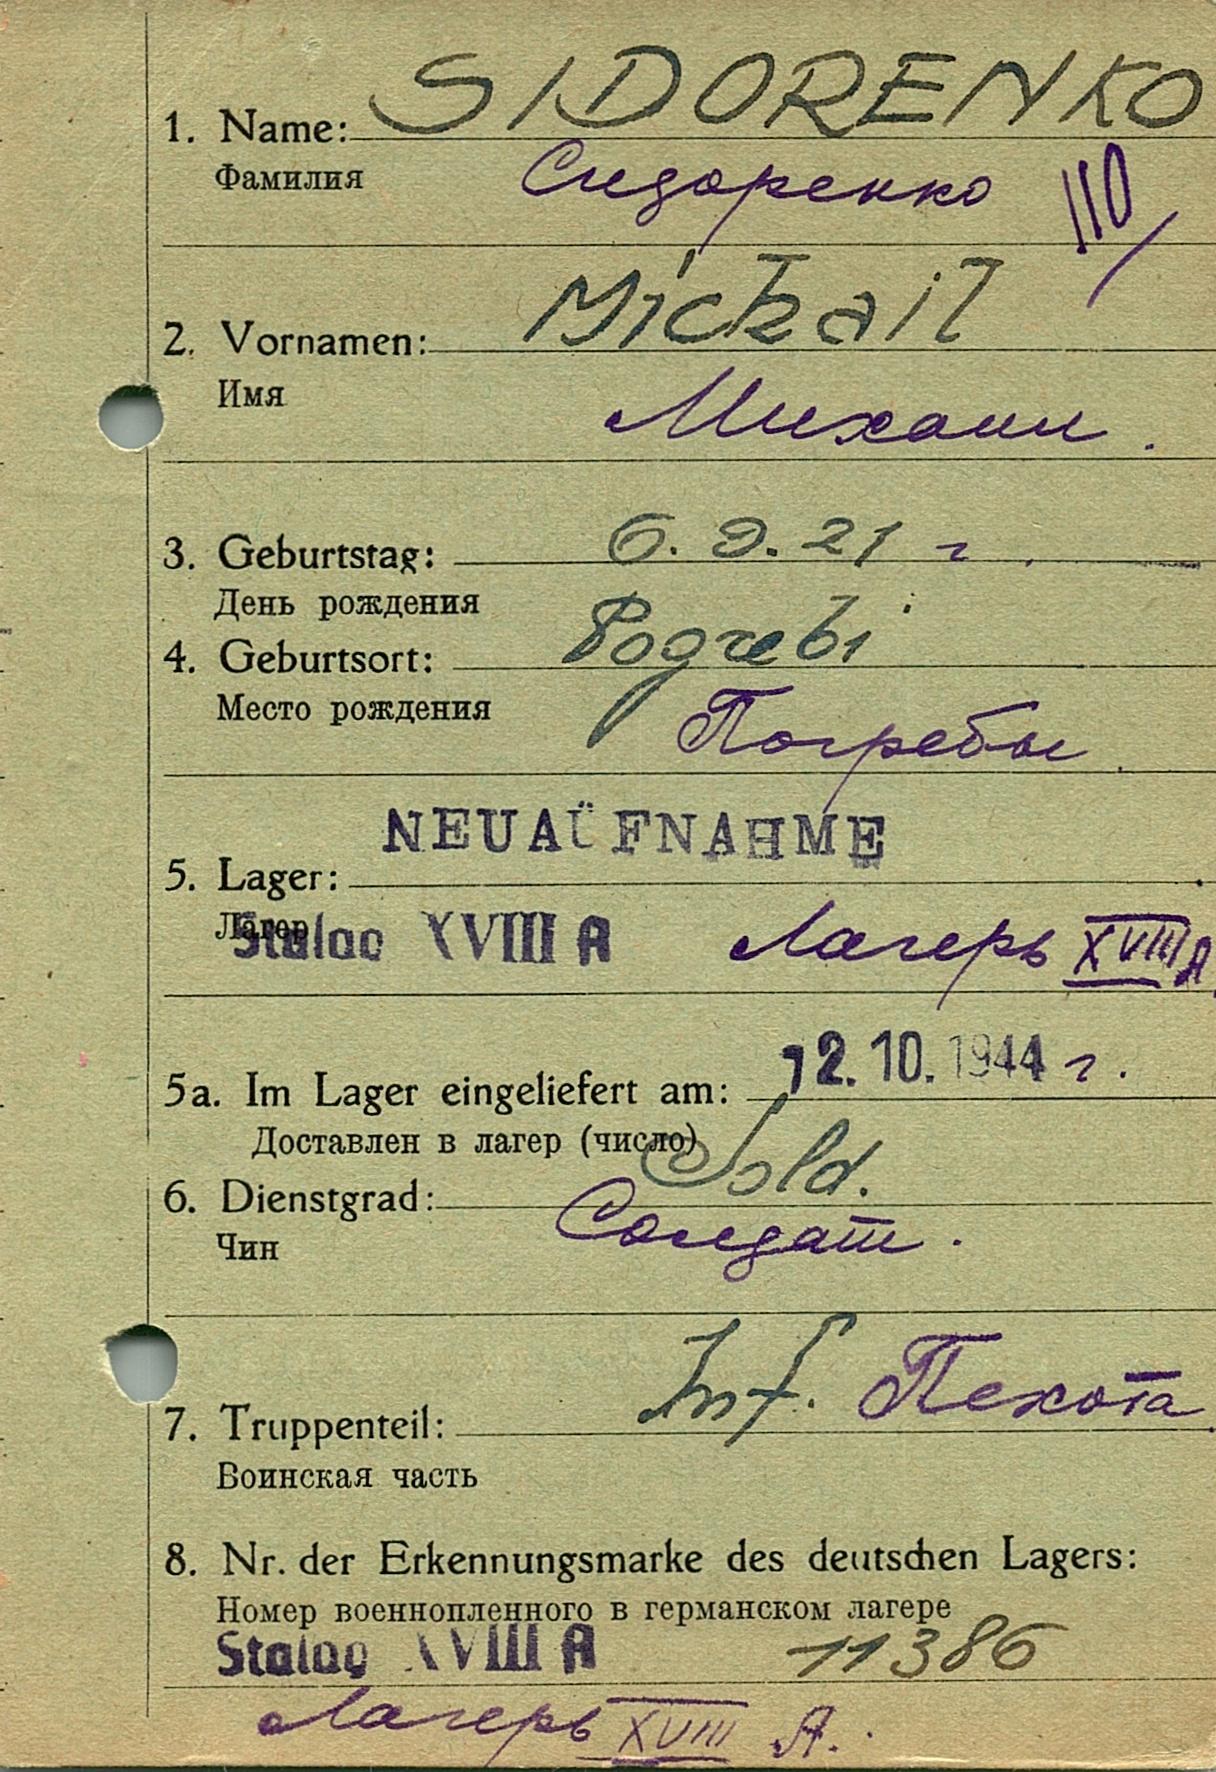 1. Name: SIDORENKO
Фамилия Сидоренко
110/
2. Vornamen: Michail
Имя
Михаил.
3. Geburtstag: 6. 9. 21 г.
День рождения
4. Geburtsort: Pogrebi
Место рождения Погребы.
NEUAUFNAHME
5. Lager:
Лагер Stalag XVIII A Лагерь XVIII A.
5a. Im Lager eingeliefert am: 12.10.1944 г.
Доставлен в лагер (число)
6. Dienstgrad: Sold.
Чин Солдат.
7. Truppenteil: Inf. Пехота.
Воинская часть
8. Nr. der Erkennungsmarke des deutschen Lagers:
Номер военнопленного в германском лагере
Stalag XVIII A 11386
Лагерь XVIII А.